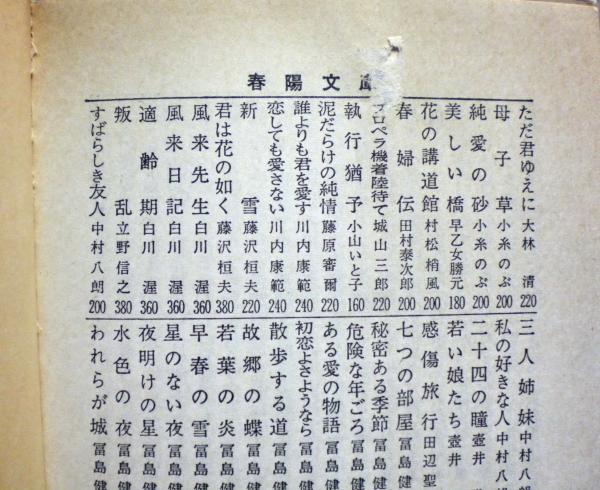 春陽文
ただ君ゆえに 大林 清 220
母子草 小糸のぶ 200
純愛の砂 小糸のぶ 200
美しい橋 早乙女勝元 180
花の講道館 村松梢風 200
春婦伝 田村泰次郎 200
プロペラ機着陸待て 城山三郎 220
執行猶予 小山いと子 160
泥だらけの純情 藤原審爾 220
誰よりも君を愛す 川内康範 240
恋しても愛さない 川内康範 240
新雪 藤沢桓夫 220
君は花の如く 藤沢桓夫 380
風来先生 白川 渥 360
風来日記 白川 渥 360
適齢期 白川 渥 360
叛乱 立野信之 380
すばらしき友人 中村八朗 200
三人姉妹 中村八
私の好きな人 中村八
二十四の瞳 壺井
若い娘たち 壺井
感傷旅行 田辺聖
七つの部屋 冨島健
秘密ある季節 冨島健
危険な年ごろ 冨島健
ある愛の物語 冨島健
初恋よさようなら 冨島健
散歩する道 冨島健
故郷の蝶 冨島健
若葉の炎 冨島健
早春の雪 冨島健
星のない夜 冨島健
夜明けの星 冨島健
水色の夜 冨島健
われらが城 冨島健